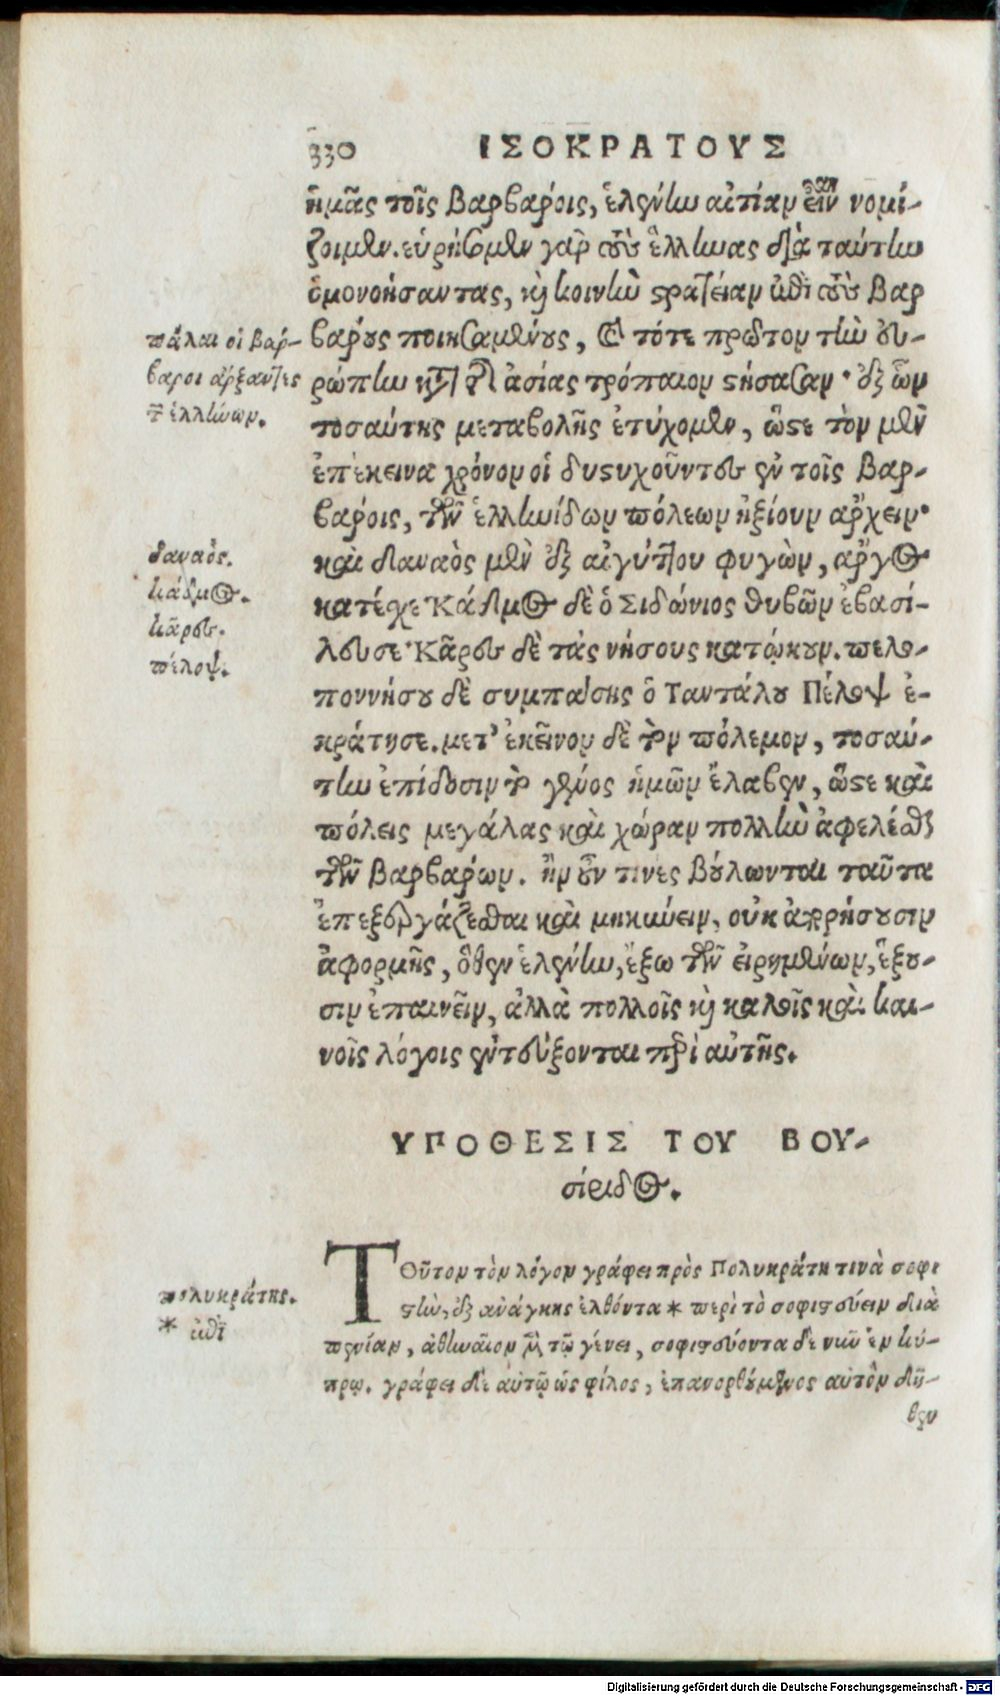 330 ΙΣΟΚΡΑΤΟΥΣ
ἡμᾶς τοῖς βαρβάροις, ἑλένην αἰτίαν εἶναι νομί-
ζοιμεν. εὑρήσομεν γὰρ τοὺς ἕλληνας διὰ ταύτην
ὁμονοήσαντας, καὶ κοινὴν στρατείαν ἐπὶ τοὺς βαρ
βάρους ποιησαμένους, καὶ τότε πρῶτον τὴν εὐ-
ρώπην κατὰ τῆς ἀσίας τρόπαιον στήσασαν· ἐξ ὧν
τοσαύτης μεταβολῆς ἐτύχομεν, ὥστε τὸν μὲν
ἐπέκεινα χρόνον οἱ δυστυχοῦντες ἐν τοῖς βαρ-
βάροις, τῶν ἑλληνίδων πόλεων ἠξίουν ἄρχειν·
καὶ Δαναὸς μὲν ἐξ αἰγύπτου φυγὼν, ἄργος
κατέσχε· Κάδμος δὲ ὁ Σιδώνιος θηβῶν ἐβασί-
λευσε· Κᾶρες δὲ τὰς νήσους κατῴκουν. πελο-
ποννήσου δὲ συμπάσης ὁ Ταντάλου Πέλοψ ἐ-
κράτησε. μετ' ἐκεῖνον δὲ τὸν πόλεμον, τοσαύ-
την ἐπίδοσιν τὸ γένος ἡμῶν ἔλαβεν, ὥστε καὶ
πόλεις μεγάλας καὶ χώραν πολλὴν ἀφελέσθαι
τῶν βαρβάρων. ἢν οὖν τινες βούλωνται ταῦτα
ἐπεξεργάζεσθαι καὶ μηκύνειν, οὐκ ἀπορήσουσιν
ἀφορμῆς, ὅθεν ἑλένην, ἔξω τῶν εἰρημένων, ἕξου-
σιν ἐπαινεῖν, ἀλλὰ πολλοῖς καὶ καλοῖς καὶ και-
νοῖς λόγοις ἐντεύξονται περὶ αὐτῆς.
πάλαι οἱ βάρ-
βαροι ἄρξαντες
τῶν ἑλλήνων.
δαναός.
κάδμος.
κᾶρες.
πέλοψ.
ΥΠΟΘΕΣΙΣ ΤΟΥ ΒΟΥ-
σίριδος.
ΤΟῦτον τὸν λόγον γράφει πρὸς Πολυκράτη τινὰ σοφι
στὴν, ἐξ ἀνάγκης ἐλθόντα * περὶ τὸ σοφιστεύειν διὰ
πενίαν, ἀθηναῖον μὲν τῷ γένει, σοφιστεύοντα δὲ νῦν ἐν κύ-
πρῳ. γράφει δὲ αὐτῷ ὡς φίλος, ἐπανορθούμενος αὐτὸν δῆ-
θεν
πολυκράτης.
* ἐπὶ
Digitalisierung gefördert durch die Deutsche Forschungsgemeinschaft - DFG